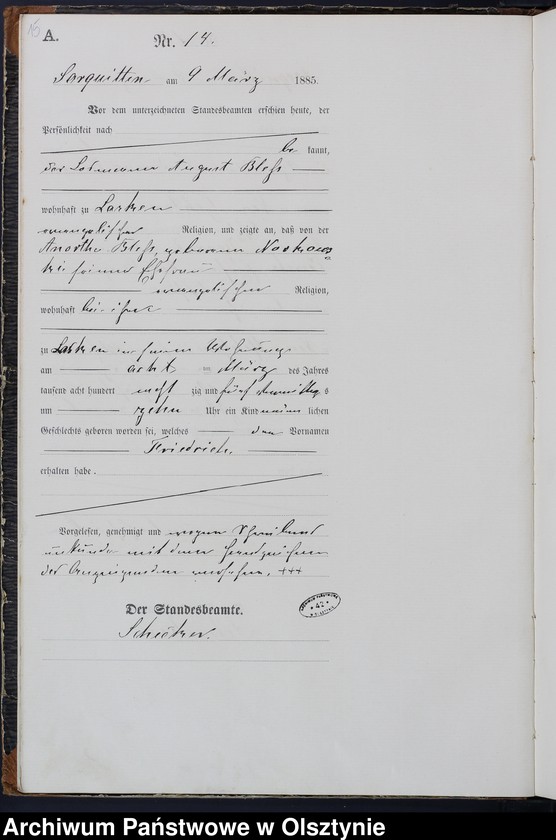 A.
Nr. 14.
Sorquitten am 9 März 1885.
Vor dem unterzeichneten Standesbeamten erschien heute, der
Persönlichkeit nach
be kannt,
der Losmann August
wohnhaft zu
evangelischer Religion, und zeigte an, daß von der
geborene
seiner Ehefrau
evangelischer Religion,
wohnhaft bei ihm
zu in seiner Wohnung
am acht ten März des Jahres
tausend acht hundert acht zig und fünf Vormittags
um zehn Uhr ein Kind männ lichen
Geschlechts geboren worden sei, welches den Vornamen
Friedrich.
erhalten habe.
Vorgelesen, genehmigt und wegen Schreibens
unkunde mit dem Handzeichen
des Anzeigenden versehen. +++
Der Standesbeamte.
42
Archiwum Państwowe w Olsztynie